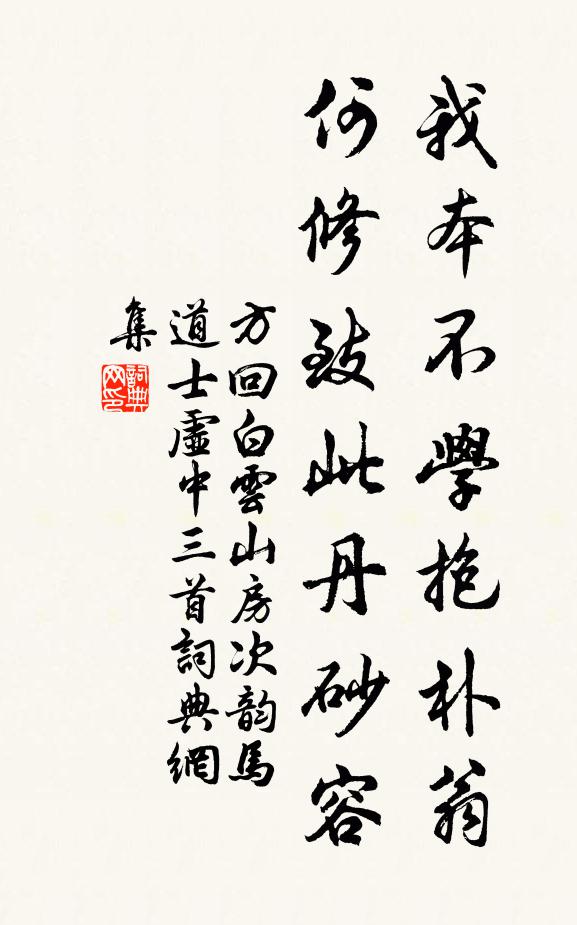 我本不學抱朴翁
何修致此丹砂容
方回白雲山房次韵馬
道士虛中三首詞典網
集
詞典
网印